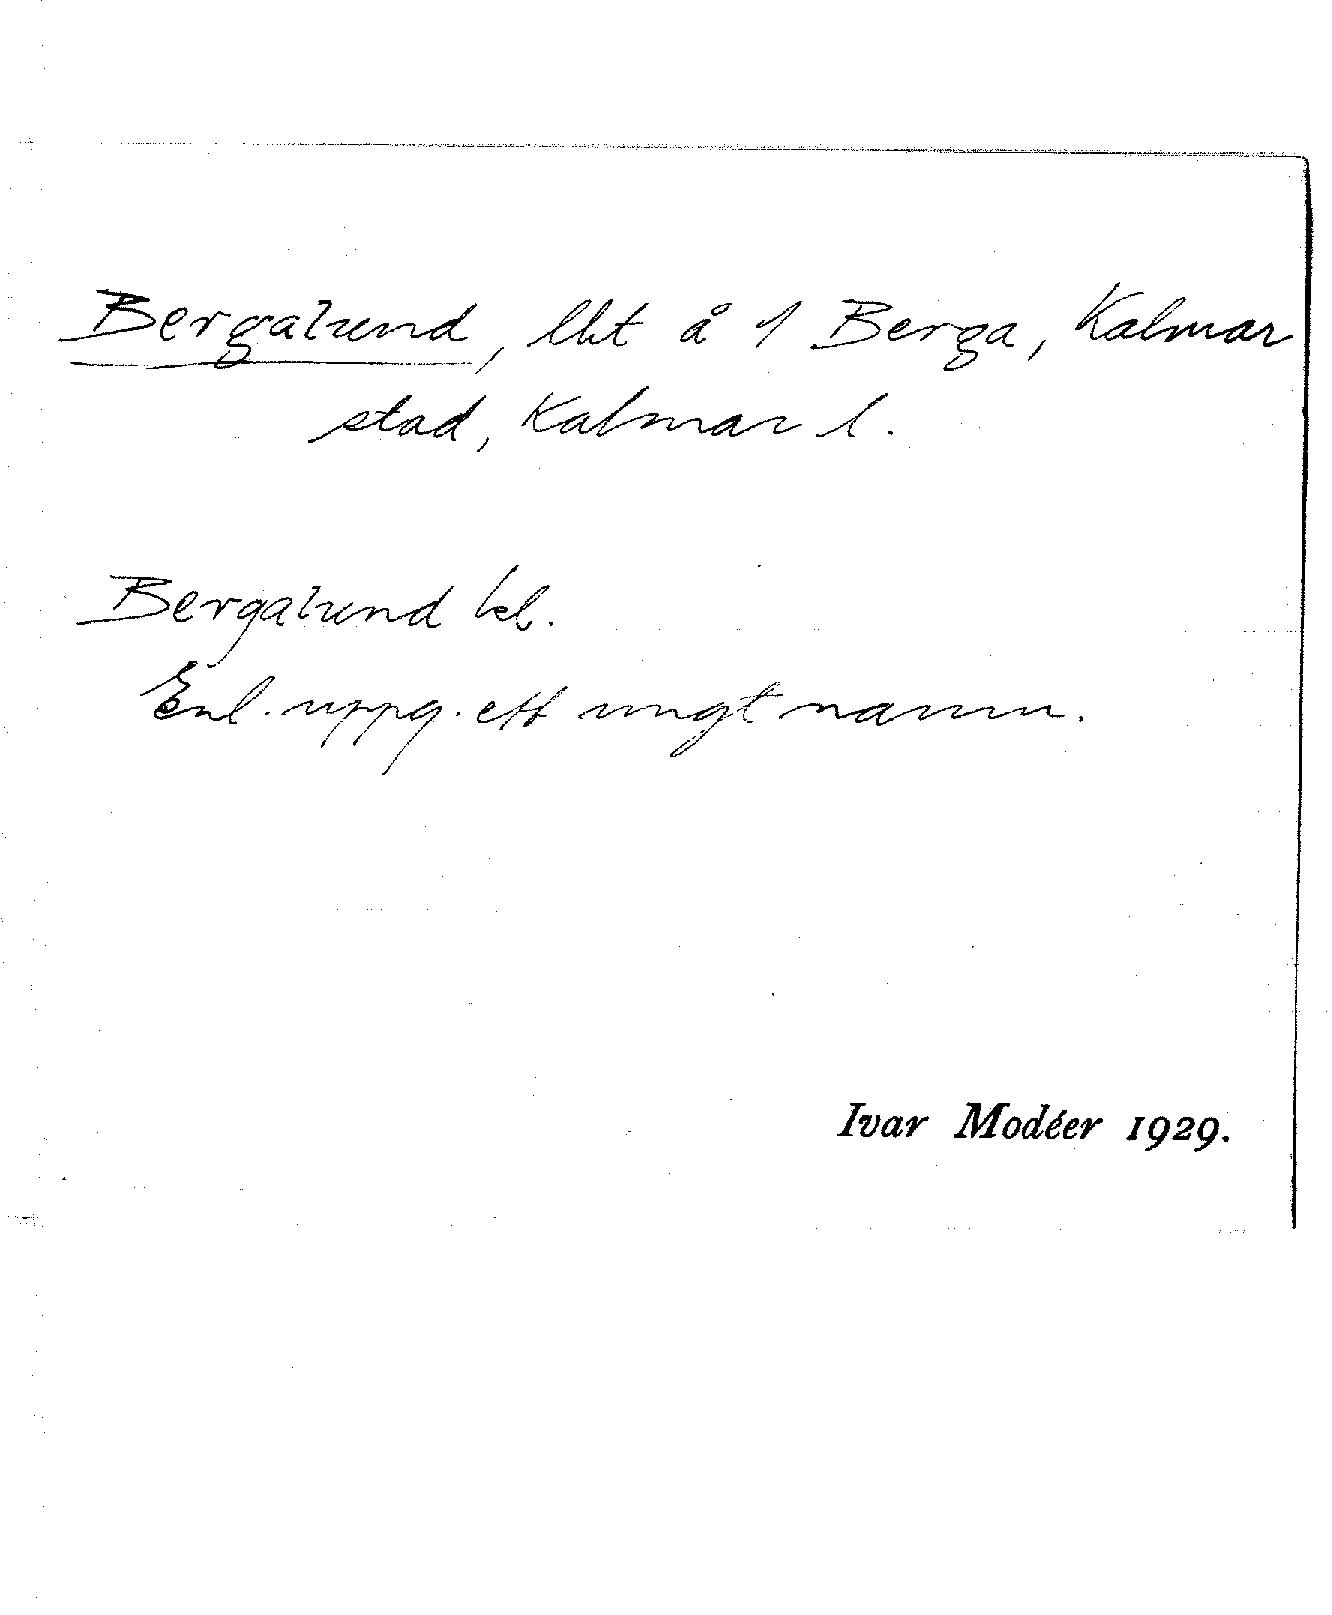 Bergalund, lht å 1 Berga, Kalmar
stad, Kalmar l.
Bergalund kl.
Enl. uppg. ett ungt namn.
Ivar Modéer 1929.